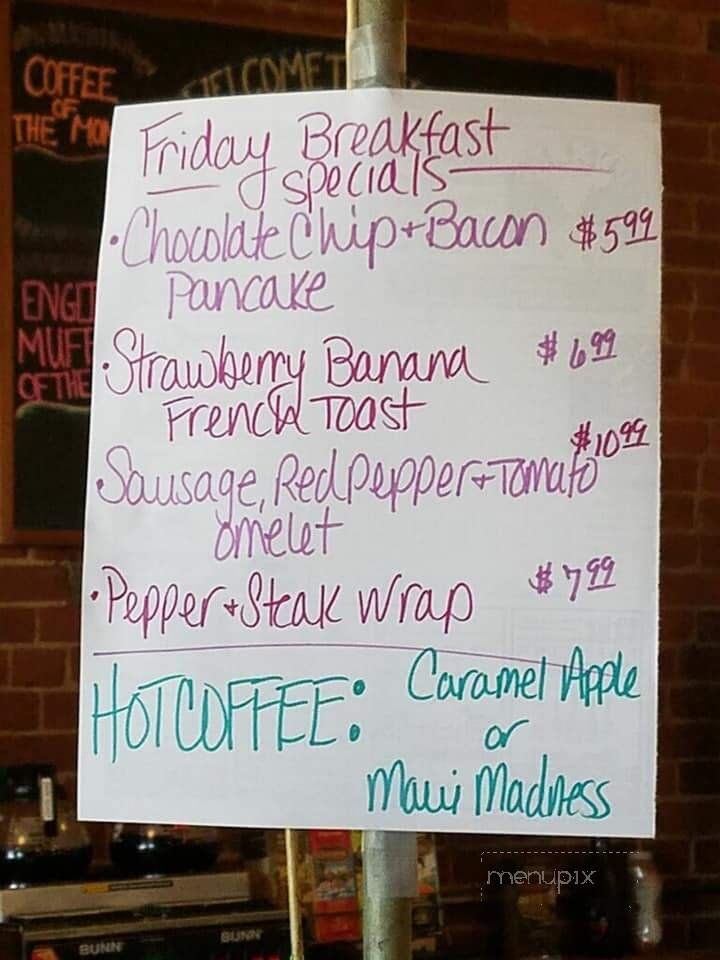 COFFEE
OF
THE
WELCOME T
ENGL
MUFF
OF THE
Friday Breakfast
specials
• Chocolate Chip + Bacon $5.99
Pancake
• Strawberry Banana $6.99
French Toast
$10.99
• Sausage, Red Pepper + Tomato
omelet
• Pepper + Steak Wrap $7.99
HOT COFFEE: Caramel Apple
or
Maui Madness
BUNN
BUNN
menupix